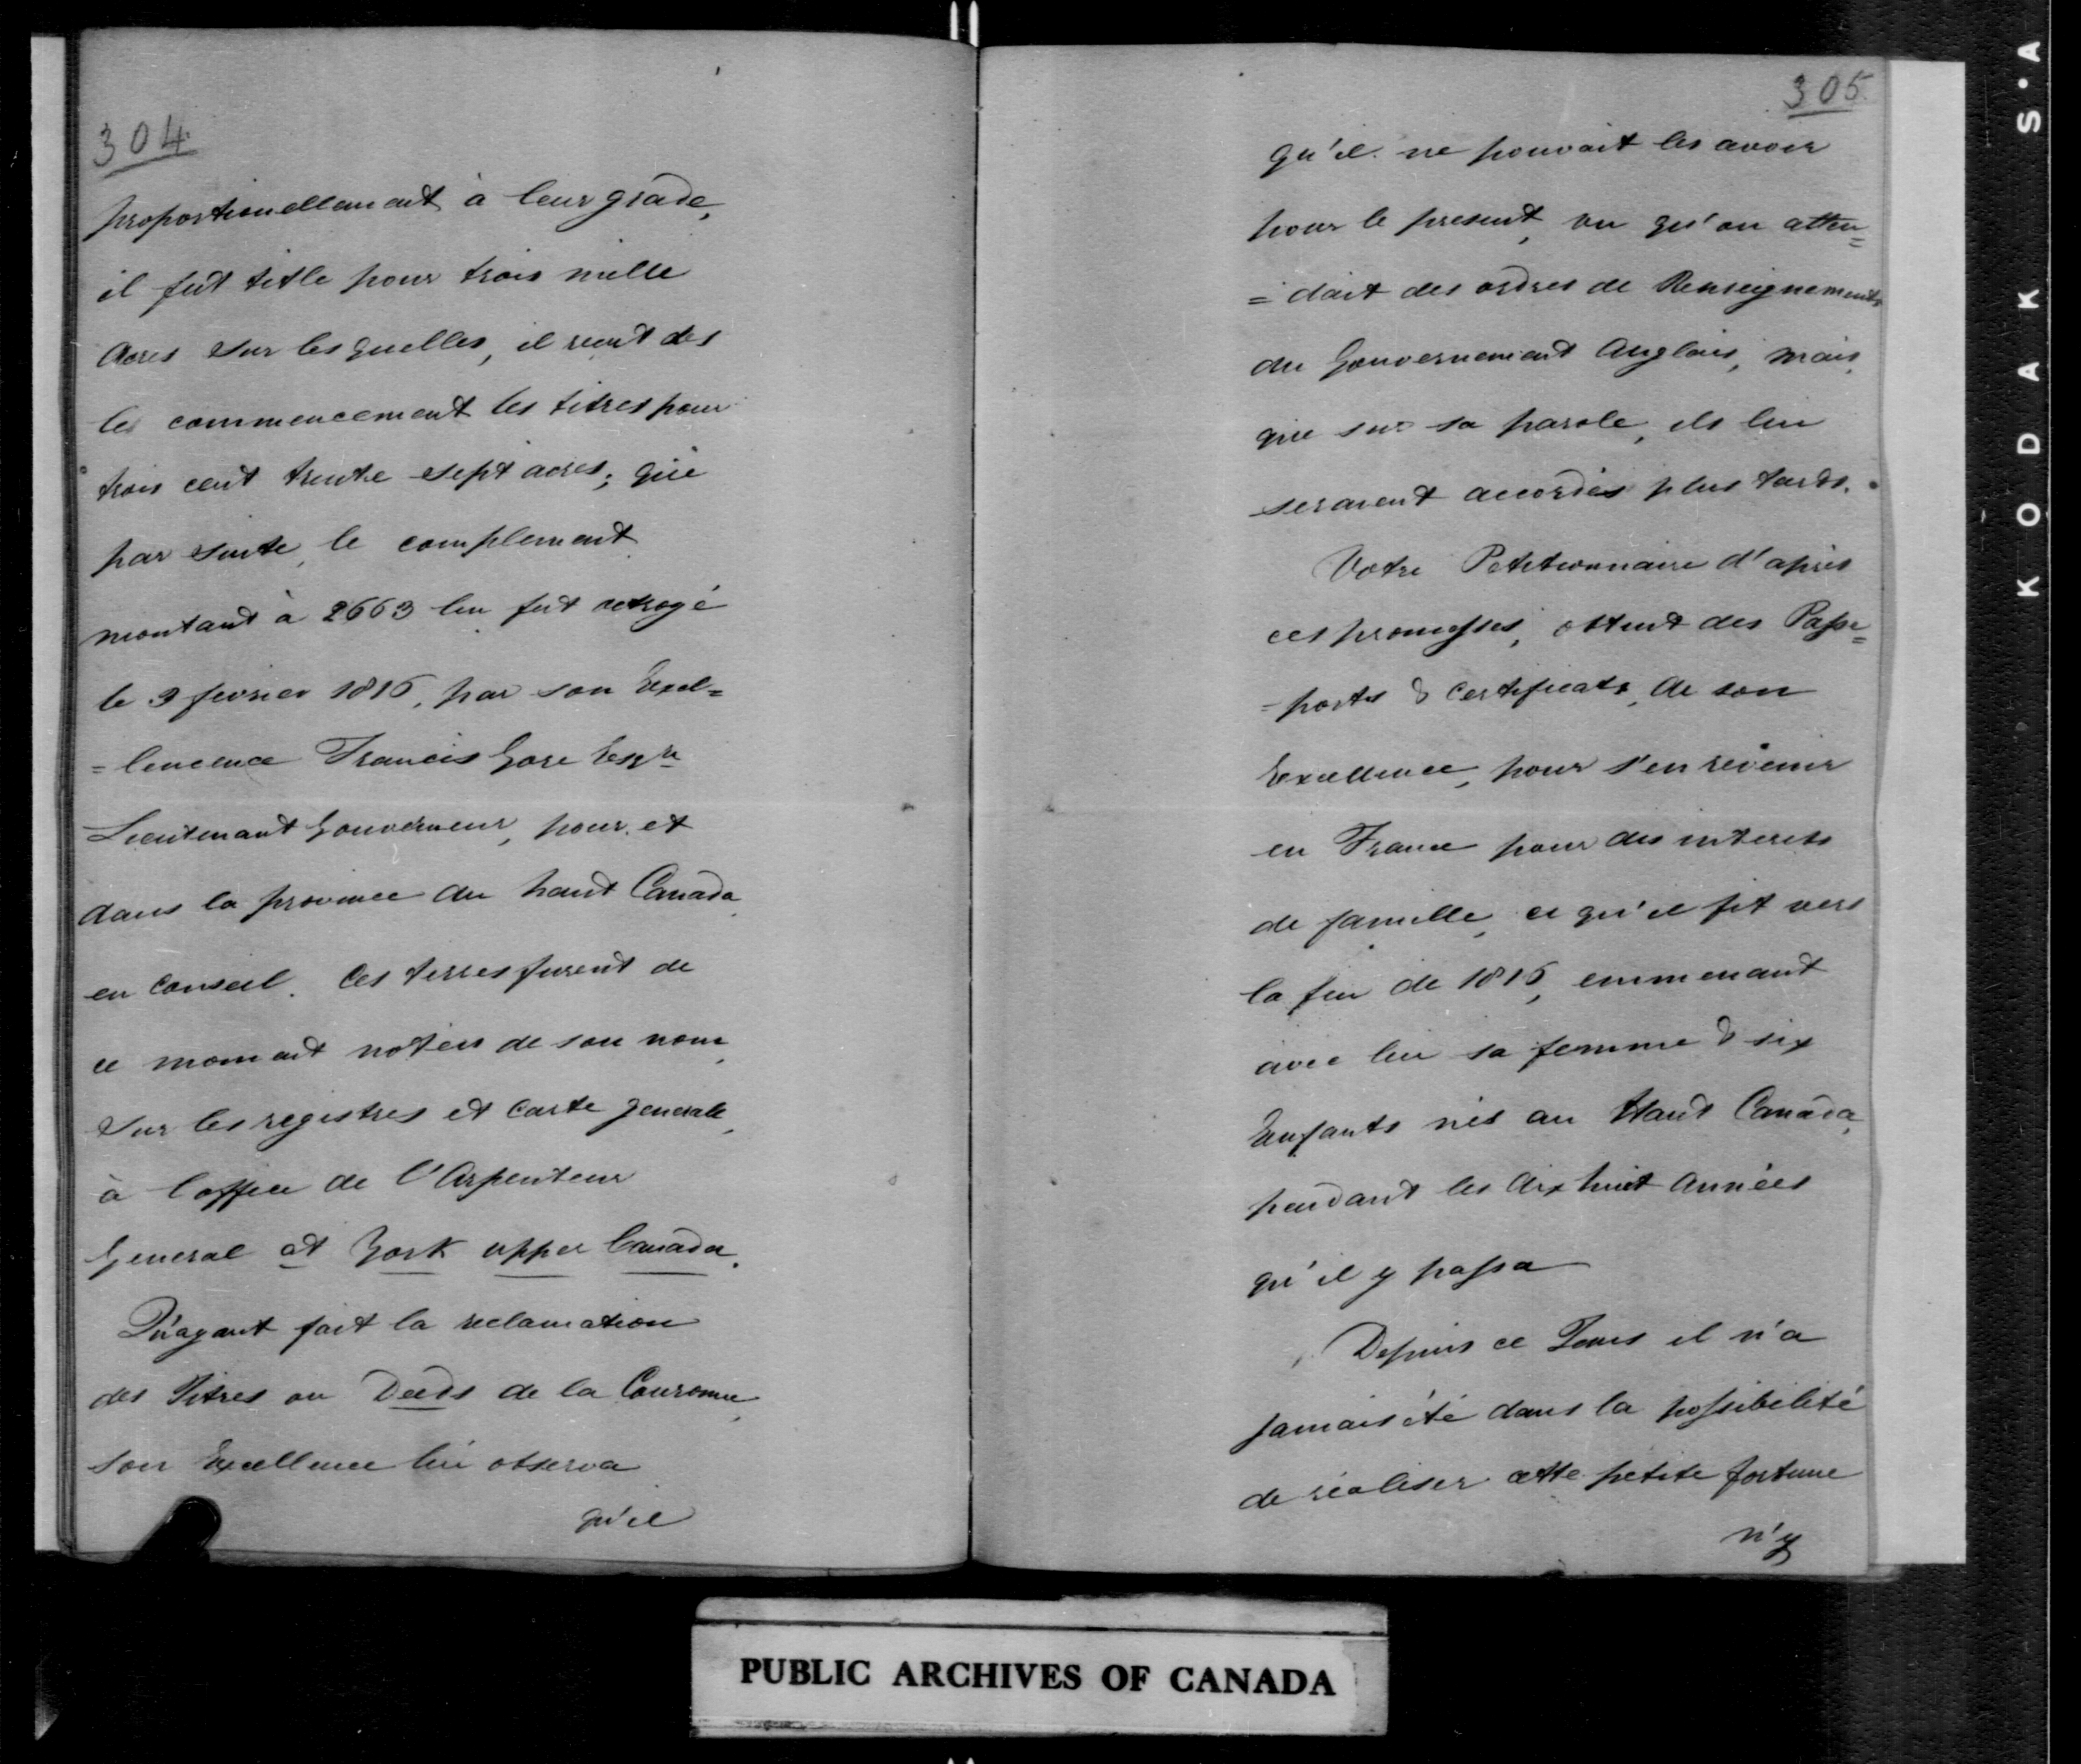 304
proportionellement à leur grade,
il fut title pour trois mille
Acres sur lesquelles, il reçut des
les commencement les titres pour
trois cent trente sept acres; que
par suite, le complement
montant à 2663 lui fut octroyé
le 3 fevrier 1816, par son Excel=
=lencence Francis Gore Esqre
Lieutenant Gouverneur, pour et
dans la province du haut Canada
en Conseil. Ces terres furent de
ce moment notées de son nom,
sur les registres et Carte generale,
à l'office de l'Arpenteur
General at York upper Canada.
N'ayant fait la reclamation
des Titres ou Deeds de la Couronne,
son Excellence lui observa
qu'il
305.
qu'il ne pouvait les avoir
pour le present, vu qu'on atten=
=dait des ordres de Renseignements
du Gouvernement Anglais, mais,
que sur sa parole, ils lui
seraient accordés plus tards.
Votre Petitionnaire d'après
ces promesses, obtint des Passe=
=ports & Certificats, de son
Excellence, pour s'en revenir
en France pour des interets
de famille, ce qu'il fit vers
la fin de 1816, emmenant
avec lui sa femme & six
Enfants nés au Haut Canada,
pendant les dix huit Années
qu'il y passa
Depuis ce Tems il n'a
jamais été dans la possibilité
de réaliser cette petite fortune
n'y
PUBLIC ARCHIVES OF CANADA
KODAK S'A